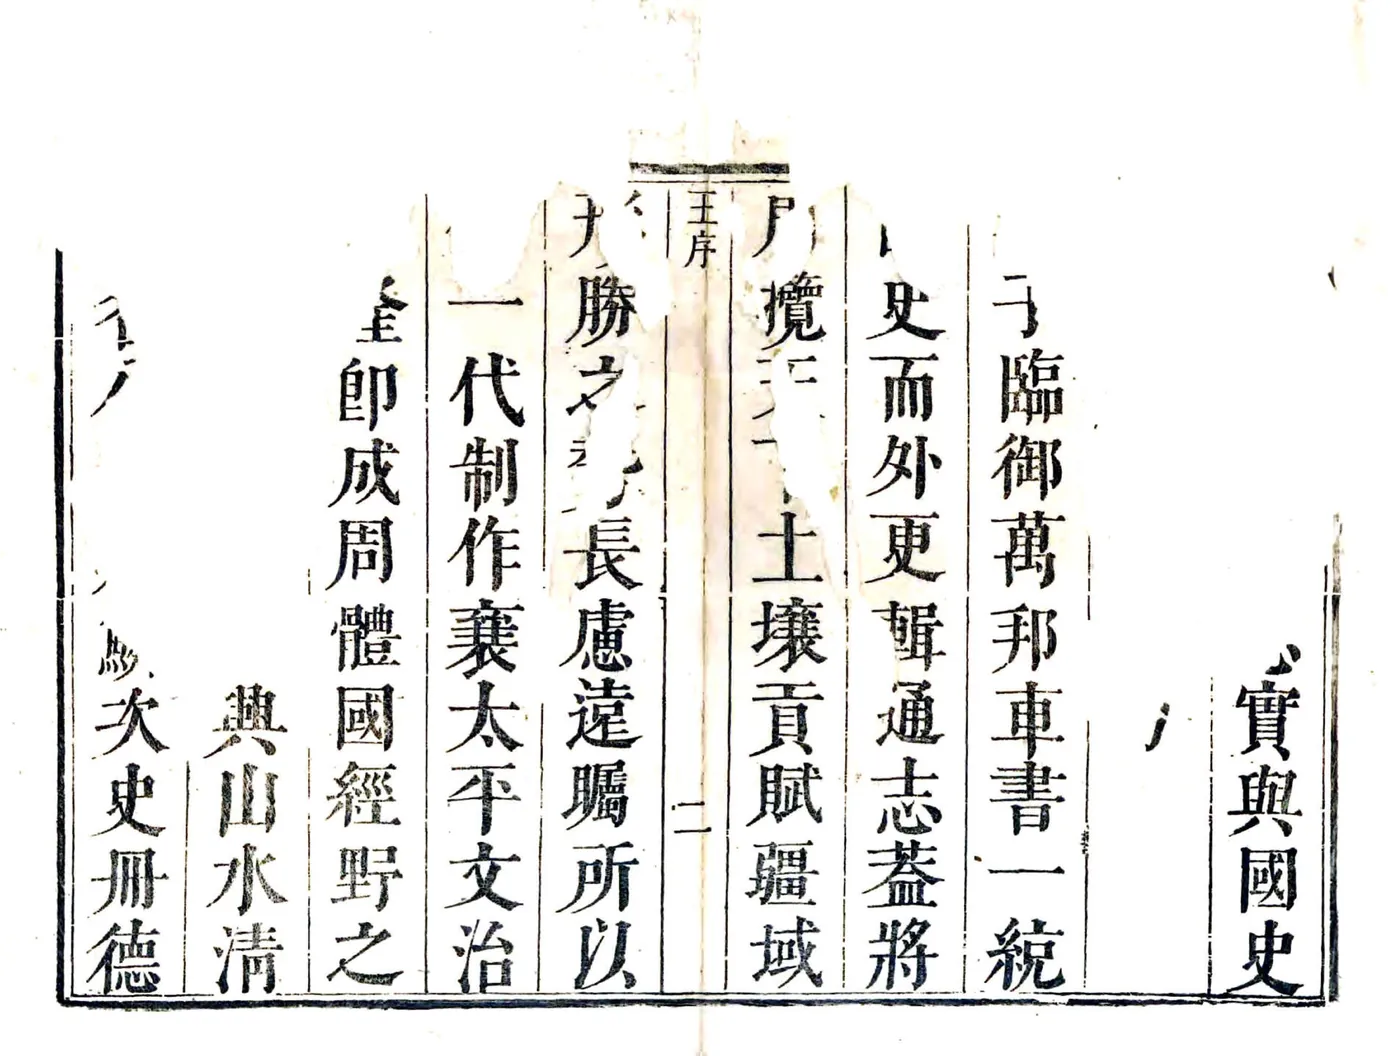 實與國史
臨御萬邦車書一統
史而外更輯通志葢將
攬土壤貢賦疆域
王序
二
勝之長慮遠矚所以
一代制作襄太平文治
卽成周體國經野之
典山水清
次史冊德